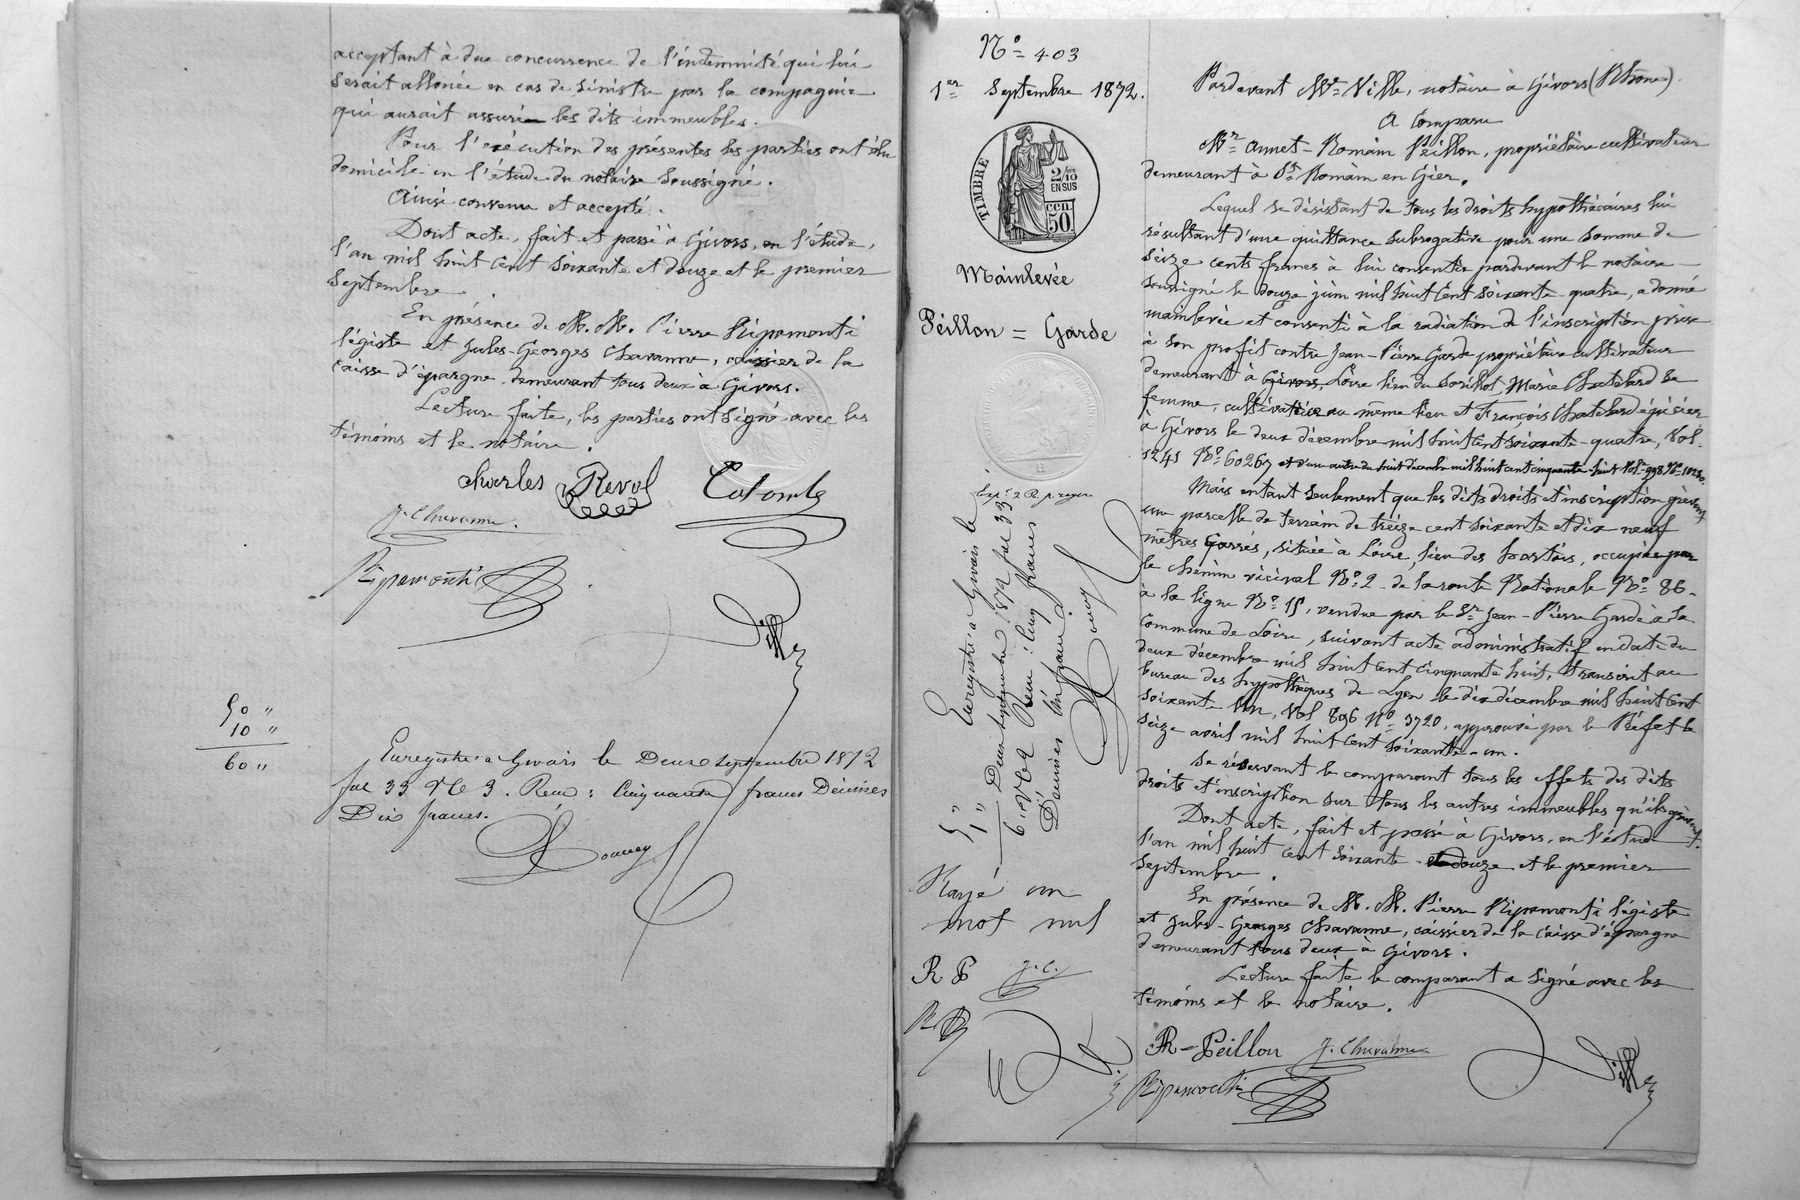 acceptant à due concurrence de l'indemnité qui lui
serait allouée en cas de sinistre par la compagnie
qui aurait assuré les dits immeubles.
Pour l'exécution des présentes les parties ont élu
domicile en l'étude du notaire soussigné.
Ainsi convenu et accepté.
Dont acte, fait et passé à Givors, en l'étude,
l'an mil huit cent soixante et douze et le premier
septembre.
En présence de M. M. Pierre Ripamonti
légiste et Jules-Georges Chavanne, caissier de la
caisse d'épargne demeurant tous deux à Givors.
Lecture faite, les parties ont signé avec les
témoins et le notaire.
Charles Revol Colombe
J. Chavanne.
Ripamonti
Ville
50 "
10 "
60 "
Enregistré à Givors le Deux septembre 1872
fol 33 Vo C 3. Reçu : Cinquante francs Décimes
Dix francs.
No 403
1er Septembre 1872.
TIMBRE
2/10
EN SUS
50 cen.
Mainlevée
Peillon = Garde
Enregistré à Givors le
Deux septembre 1872 fol 33
Vo C 2 Reçu : Cinq francs
Décimes Un franc
5 "
1 "
6 "
Rayé un
mot nul
R P J. C.
Pardevant Me Ville, notaire à Givors (Rhône).
A Comparu
Mr Annet-Romain Peillon, propriétaire cultivateur
demeurant à St Romain en Gier.
Lequel se désistant de tous les droits hypothécaires lui
résultant d'une quittance subrogative pour une somme de
seize cents francs à lui consentie pardevant le notaire
soussigné le douze juin mil huit cent soixante-quatre, a donné
mainlevée et consenti à la radiation de l'inscription prise
à son profit contre Jean-Pierre Garde propriétaire cultivateur
demeurant à Givors, Loire lieu du Marie Chatelard sa
femme, cultivatrice au même lieu et François Chatelard épicier
à Givors le deux décembre mil huit cent soixante-quatre, Vol.
1241 No 60267 et d'une autre du huit décembre mil huit cent cinquante huit Vol. 998 No
Mais en tant seulement que les dits droits et inscription grèvent
une parcelle de terrain de treize cent soixante et dix-neuf
mètres carrés, située à Loire, lieu des hortois, occupée par
le chemin vicinal No 2 de la route Nationale No 86
à la ligne No 15, vendue par le Sr Jean-Pierre Garde à la
Commune de Loire, suivant acte administratif en date du
deux décembre mil huit cent cinquante huit, transcrit au
bureau des hypothèques de Lyon le dix décembre mil huit cent
soixante-un, Vol 896 No 3720, approuvé par le Préfet le
seize avril mil huit cent soixante-un.
Se réservant le comparant tous les effets des dits
droits et inscription sur tous les autres immeubles qu'ils grèvent.
Dont acte, fait et passé à Givors, en l'étude
l'an mil huit cent soixante - et douze et le premier
septembre.
En présence de M. M. Pierre Ripamonti légiste
et Jules-Georges Chavanne, caissier de la caisse d'épargne
demeurant tous deux à Givors.
Lecture faite le comparant a signé avec les
témoins et le notaire.
R - Peillon J. Chavanne Ville
Ripamonti